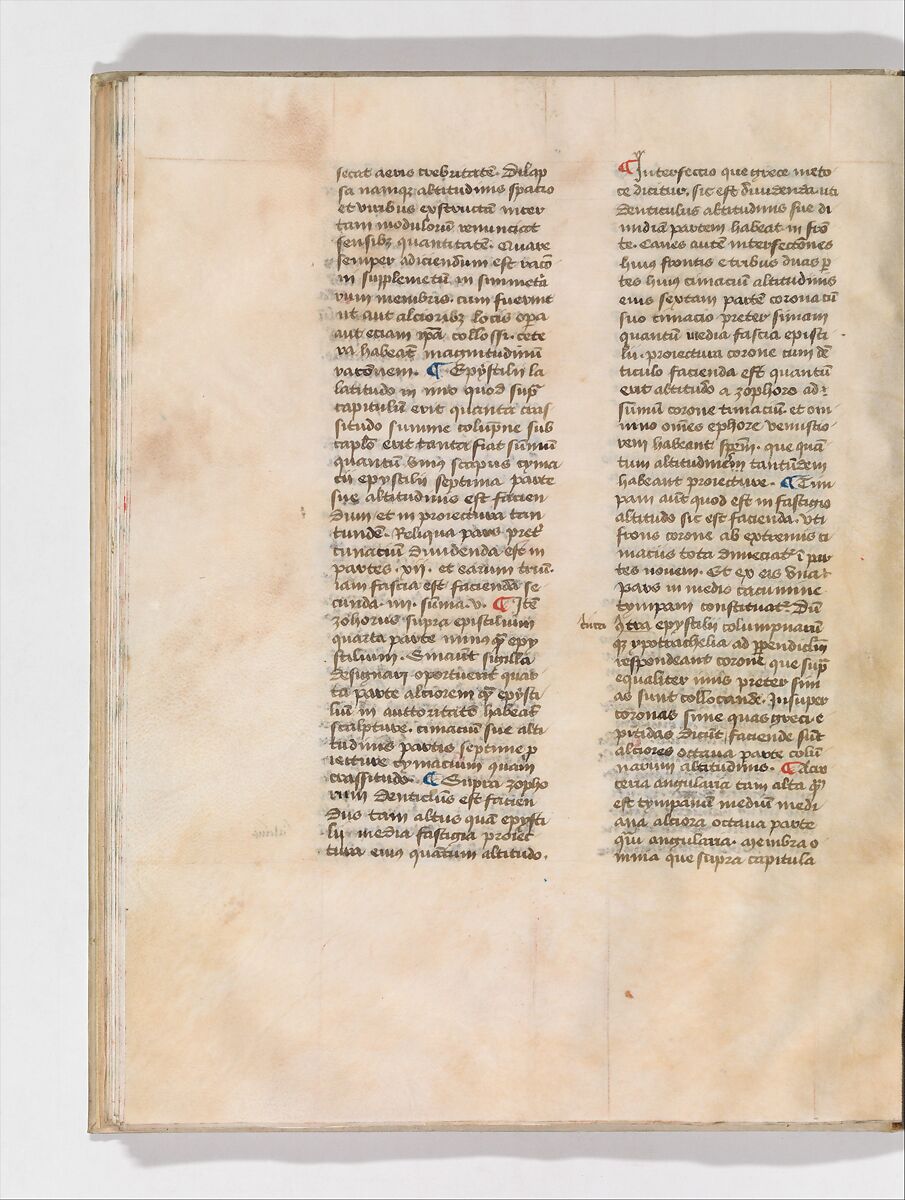 secat aeris crebritatem. Dilap
sa namque altitudinis spatio
et viribus exstructam incer
tam modulorum renunciat
sensibus quantitatem. Quare
semper adiciendum est racōi
in supplemetū in simmetr̄
rum membris. cum fuerint
ut aut alcioribꝫ locis opera
aut eciam ip̄a collossi. cete
ra habeāt magnitudinū
racōnem. ¶ Epystilii la
latitudo in imo quod supra
capitulū erit quanta cras
situdo summe colupne sub
capl̄o erit tanta fiat sūmū
quantū vnius scapus cyma
cii epystilii septima parte
sue altitudinis est facien
dum et in proiectura tan
tundē. Reliqua pars preter
cimaciū diuidenda est in
partes .xii. et earum triū.
iam fascia est facienda se
cunda .iiii. sūma .v. ¶ Itē
zohorus supra epistilium
quarta parte minus quam epy
stilium. Sin aūt sigilla
designari oportuerit quar
ta parte alciorem quam epysti
lium in auttoritatē habeāt
sculpture. cimaciū sue alti
tudinis partis septime p
iecture cymacium quam
crassitudo. ¶ Supra zopho
rum denticlus est facien
dus tam altus quā epysti
lii media fastigia proiec
tura eius quātum altitudo.
¶ Intersectio que grece meto
ce dicitur. sic est diuidenda uti
denticulus altitudinis sue di
midiā partem habeat in frō
te. Caues autē intersectiones
huius frontis e tribus duas p̄
tes huius cimaciū altitudinis
eius sextam partē corona cū
suo cimacio preter simam
quantū media fascia episti
lii. proiectura corone cum dē
ticulo facienda est quantū
erit altitudo a zophoro ad
sūmū corone cimaciū et om
nino om̄es ephore venustio
rem habeant spēm. que quā
tum altitudinem tantūdem
habeant proiecture. ¶ Tim
pani aūt quod est in fastigio
altitudo sic est facienda. vti
frons corone ab extremis ci
maciis tota dimeciat̄ ī par
tes nouem. Et ex eis vna
pars in medio cacumine
tympani constituat̄. Dū
cōtra epystilii columpnarū
qꝫ ypotrachelia ad ꝑpendiclū
respondeant corone, que supra
equaliter imis preter sim
as sunt collocande. Insuper
coronas sime quas greci e
pitidas dicūt faciende sūt
alciores octaua parte colū
narum altitudinis. ¶ Acro
teria angularia tam alta quam
est tympanū mediū medi
ana alciora octaua parte
quam angularia. Membra o
mnia que supra capitula